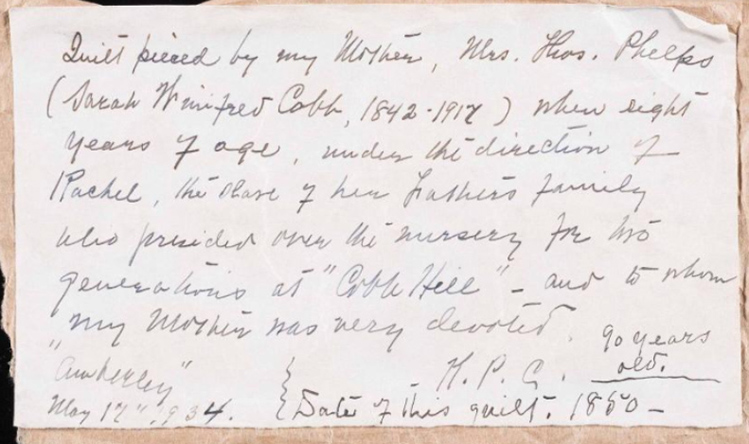 Quilt pieced by my Mother, Mrs. Thos. Phelps
(Sarah Winifred Cobb, 1842-1917) when eight
years of age, under the direction of
Rachel, the slave of her Fathers family
who presided over the nursery for two
generations at "Cobb Hill" - and to whom
my Mother was very devoted.
90 years
old.
H. P. C.
"Amberley"
May 17" 1934.
Date of this quilt. 1850-